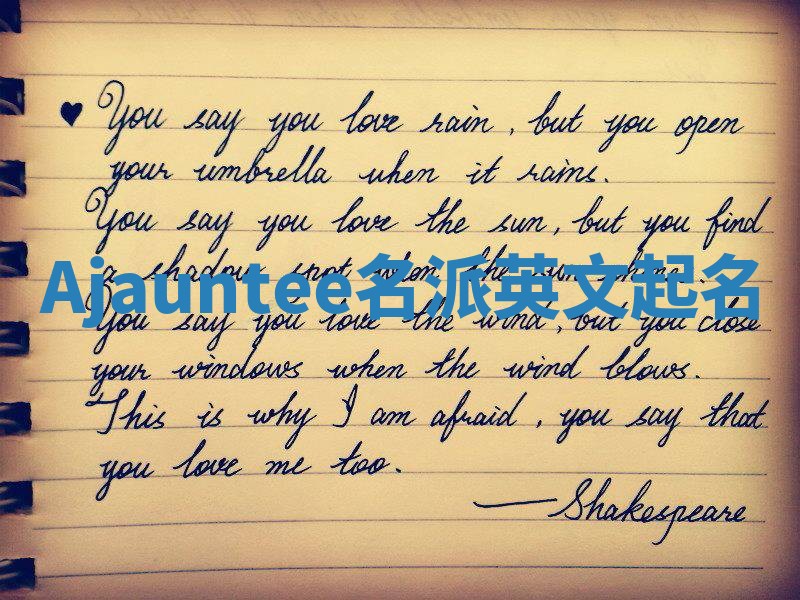 ♥ You say you love rain, but you open
your umbrella when it rains.
You say you love the sun, but you find
a shadow spot when the sun shines.
Ajauntee名派英文起名
You say you love the wind, but you close
your windows when the wind blows.
This is why I am afraid, you say that
you love me too.
—Shakespeare